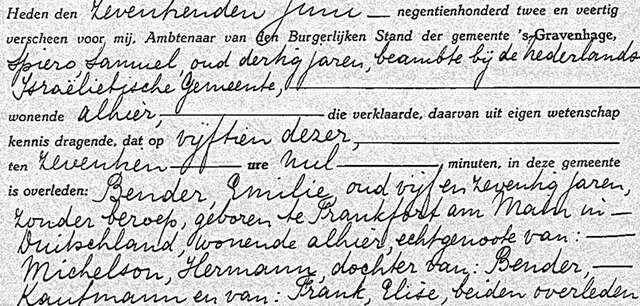 Heden den Zeventienden Juni — negentienhonderd twee en veertig
verscheen voor mij, Ambtenaar van den Burgerlijken Stand der gemeente 's-Gravenhage,
Spiero, Samuel, oud dertig jaren, beambte bij de nederlands
Israëlietische Gemeente, —
wonende alhier, — die verklaarde, daarvan uit eigen wetenschap
kennis dragende, dat op vijftien dezer, —
ten zeventien — ure nul —, minuten, in deze gemeente
is overleden: Bender, Emilie, oud vijf en zeventig jaren,
zonder beroep, geboren te Frankfort am Main in —
Duitschland, wonende alhier, echtgenoote van: —
Michelson, Hermann, dochter van: Bender, —
Kaufmann en van: Frank, Elise, beiden overleden